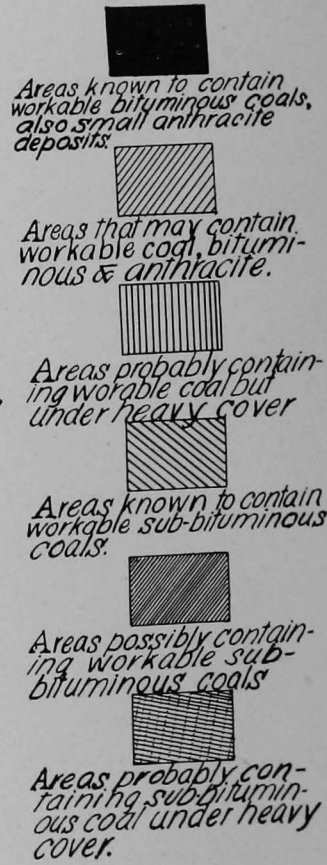 Areas known to contain
workable bituminous coals,
also small anthracite
deposits.
Areas that may contain
workable coal, bitumi-
nous & anthracite.
Areas probably contain-
ing worable coal but
under heavy cover
Areas known to contain
workable sub-bituminous
coals.
Areas possibly contain-
ing workable sub-
bituminous coals
Areas probably con-
taining sub-bitumin-
ous coal under heavy
cover.